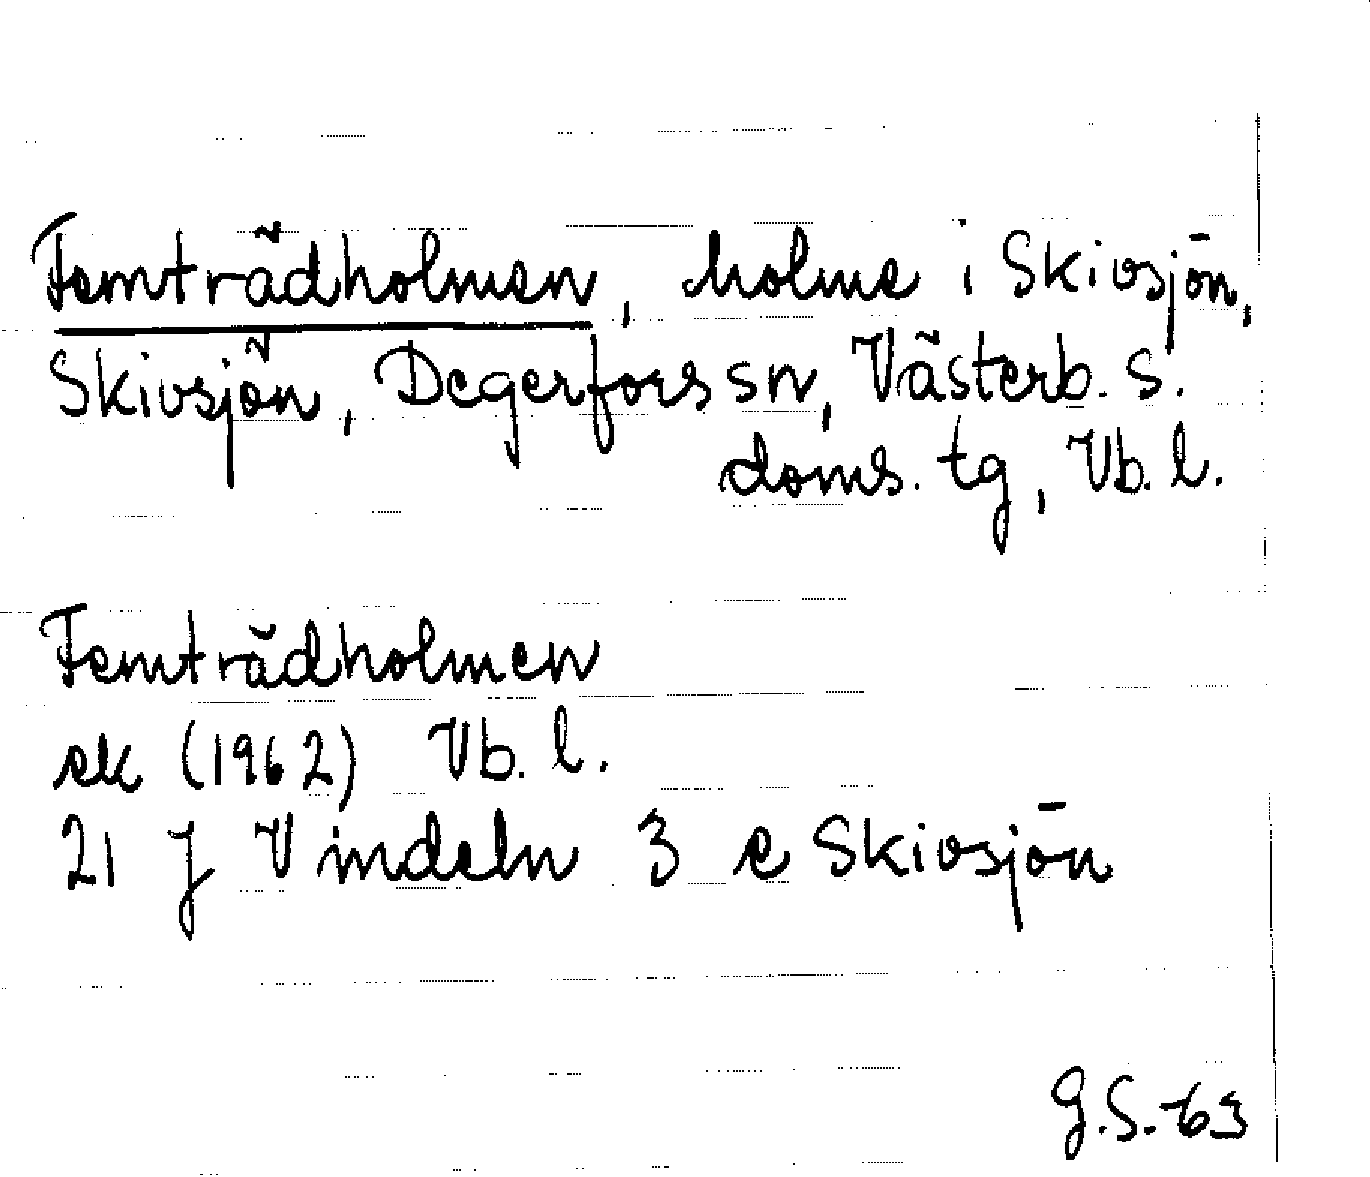 Femträdholmen, holme i Skivsjön,
Skivsjön, Degerfors sn, Västerb. s.
doms. tg, Vb. l.
Femträdholmen
ek (1962) Vb. l.
21 J Vindeln 3 e Skivsjön
G.S.-63